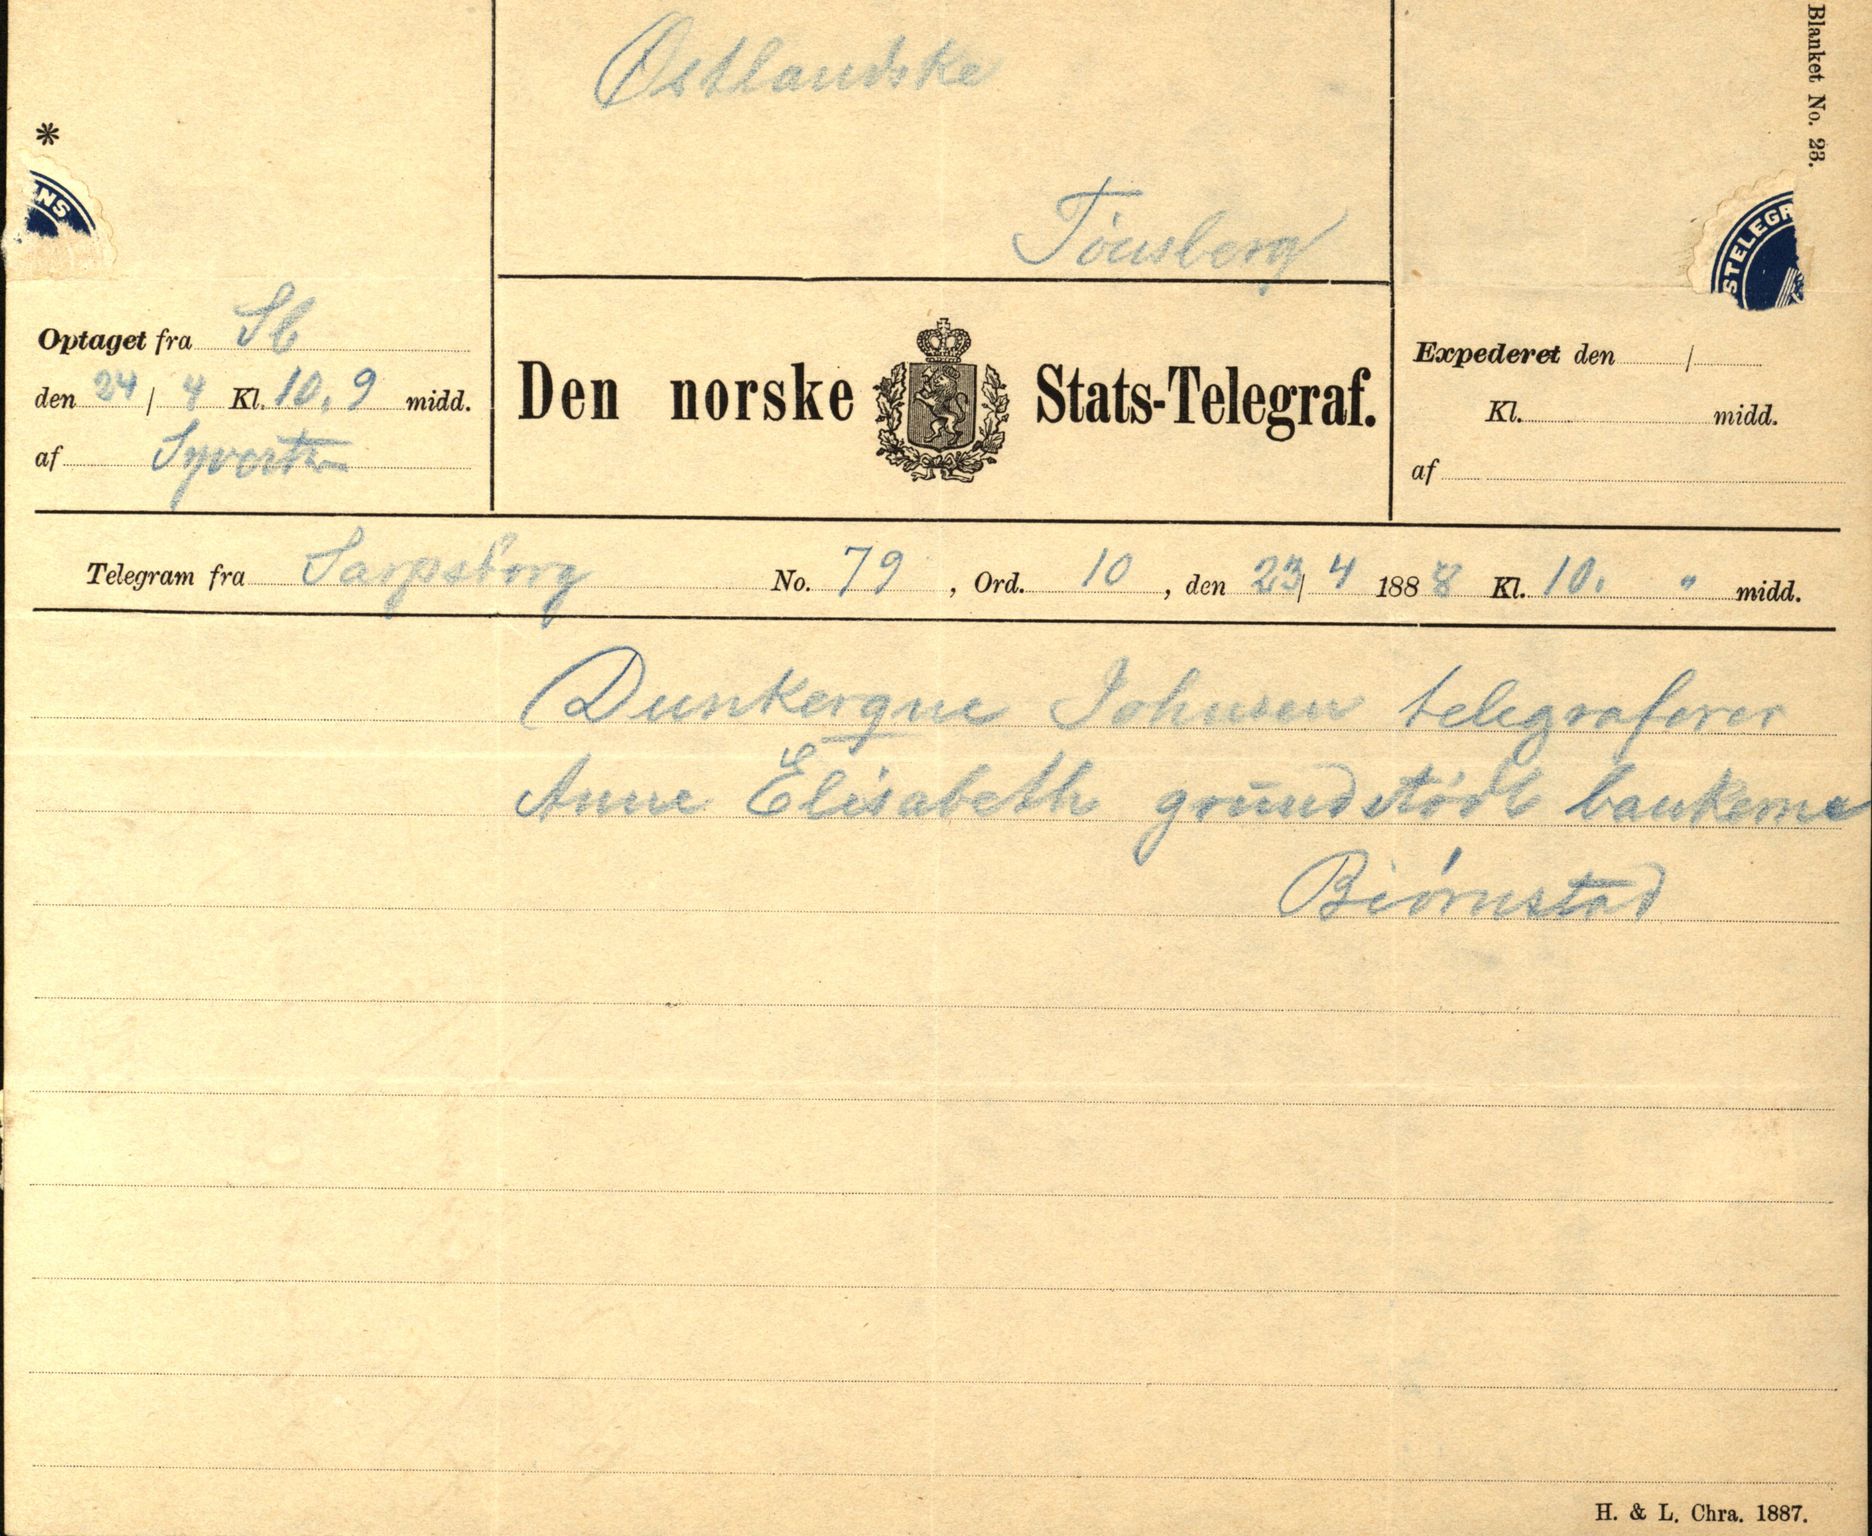 Blanket No. 23.
Østlandske
Tönsberg
*
NS
STELEGR
Optaget fra Sb
den 24 / 4 Kl. 10,9 midd.
af
Den norske Stats-Telegraf.
Expederet den /
Kl. midd.
af
Telegram fra Sarpsborg No. 79, Ord. 10, den 23/4 1888 Kl. 10. " midd.
Dunkerque Johnsen telegraferer
Anne Elisabeth grundstødt bankerne
Biörnstad
H. & L. Chra. 1887.